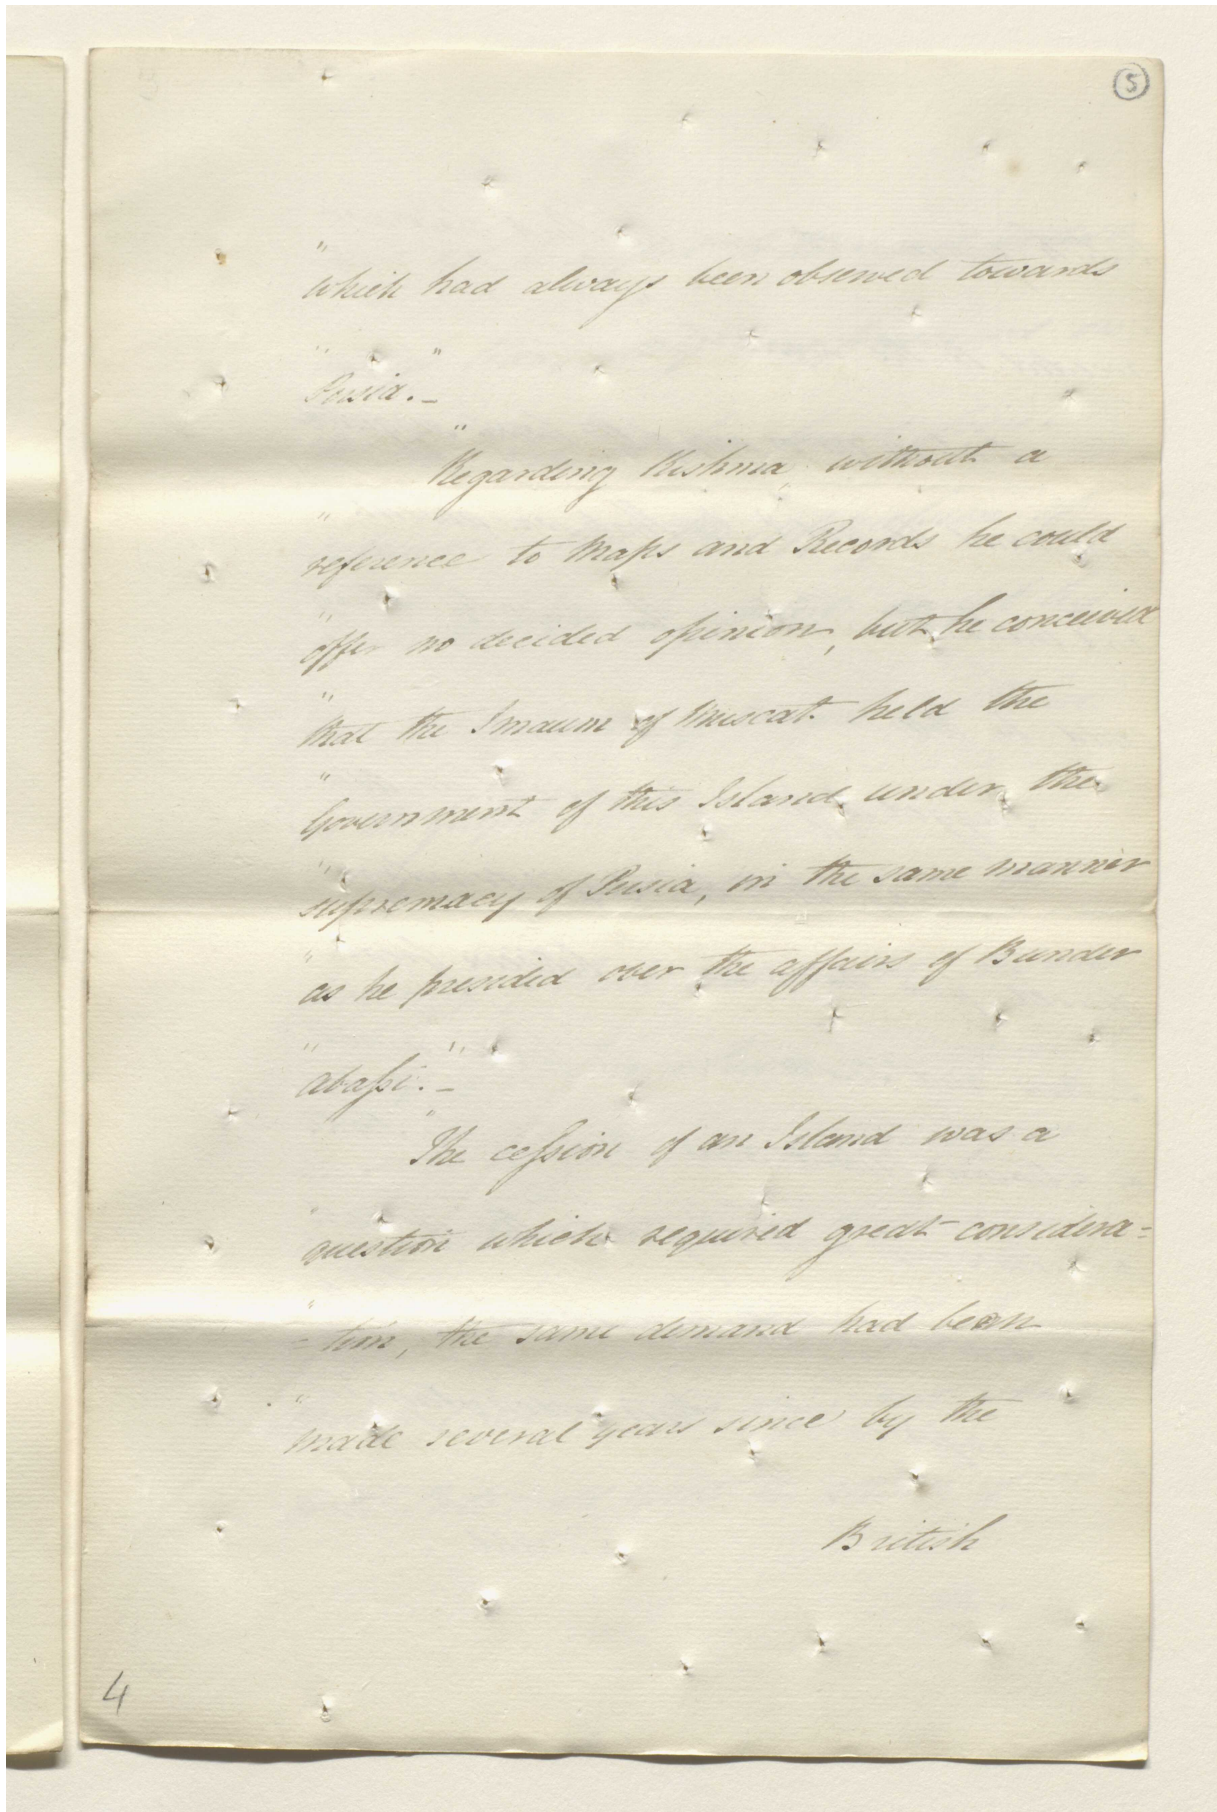 5
"which had always been observed towards
"Persia."_
"Regarding Kishma, without a
"reference to Maps and Records he could
"offer no decided opinion, but he conceived
"that the Imaum of Muscat held the
"Government of this Island under the
"supremacy of Persia, in the same manner
"as he presided over the affairs of Bunder
"abaſsi."_
"The ceſsion of an Island was a
"question which required great considera=
"-tion, the same demand had been
"made several years since by the
British
4